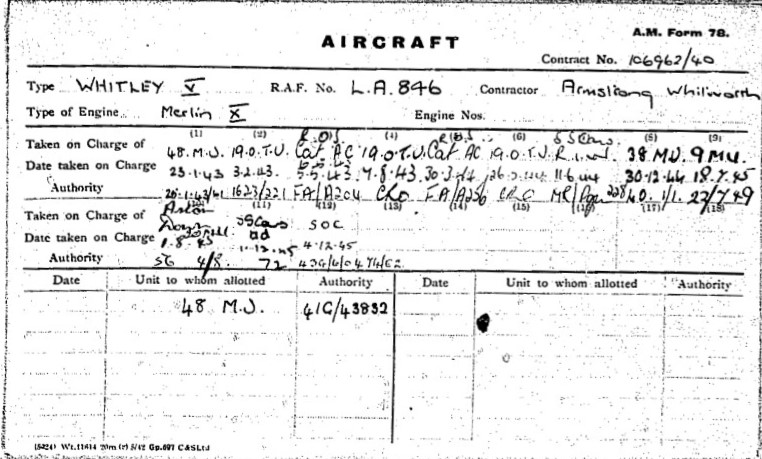 A.M. Form 78.
AIRCRAFT
Contract No. 106962/40
Type WHITLEY V R.A.F. No. L.A.846 Contractor Armstrong Whitworth
Type of Engine Merlin X Engine Nos.
(1) (2) R.O.S. (4) R.O.S. (6) (8) (9)
Taken on Charge of 48.M.U. 19.O.T.U. Cat AC 19.O.T.U. Cat AC 19.O.T.U. 38 M.U. 9 M.U.
Date taken on Charge 23.1.43 3.2.43 5.5.43 7.8.43 30.3.44 11.6.44 30.12.44 18.7.45
Authority 1623/221 FA/A204 CRO
(11) (12) (13) (14) (15) (16) (17) (18)
Taken on Charge of SOC
Date taken on Charge 1.8.45 1.12.45 4.12.45
Authority 4/8 72
Date Unit to whom allotted Authority Date Unit to whom allotted Authority
48 M.U. 41G/43832
(5424) Wt.11614 20m (r) 5/42 Gp.697 C&SLtd